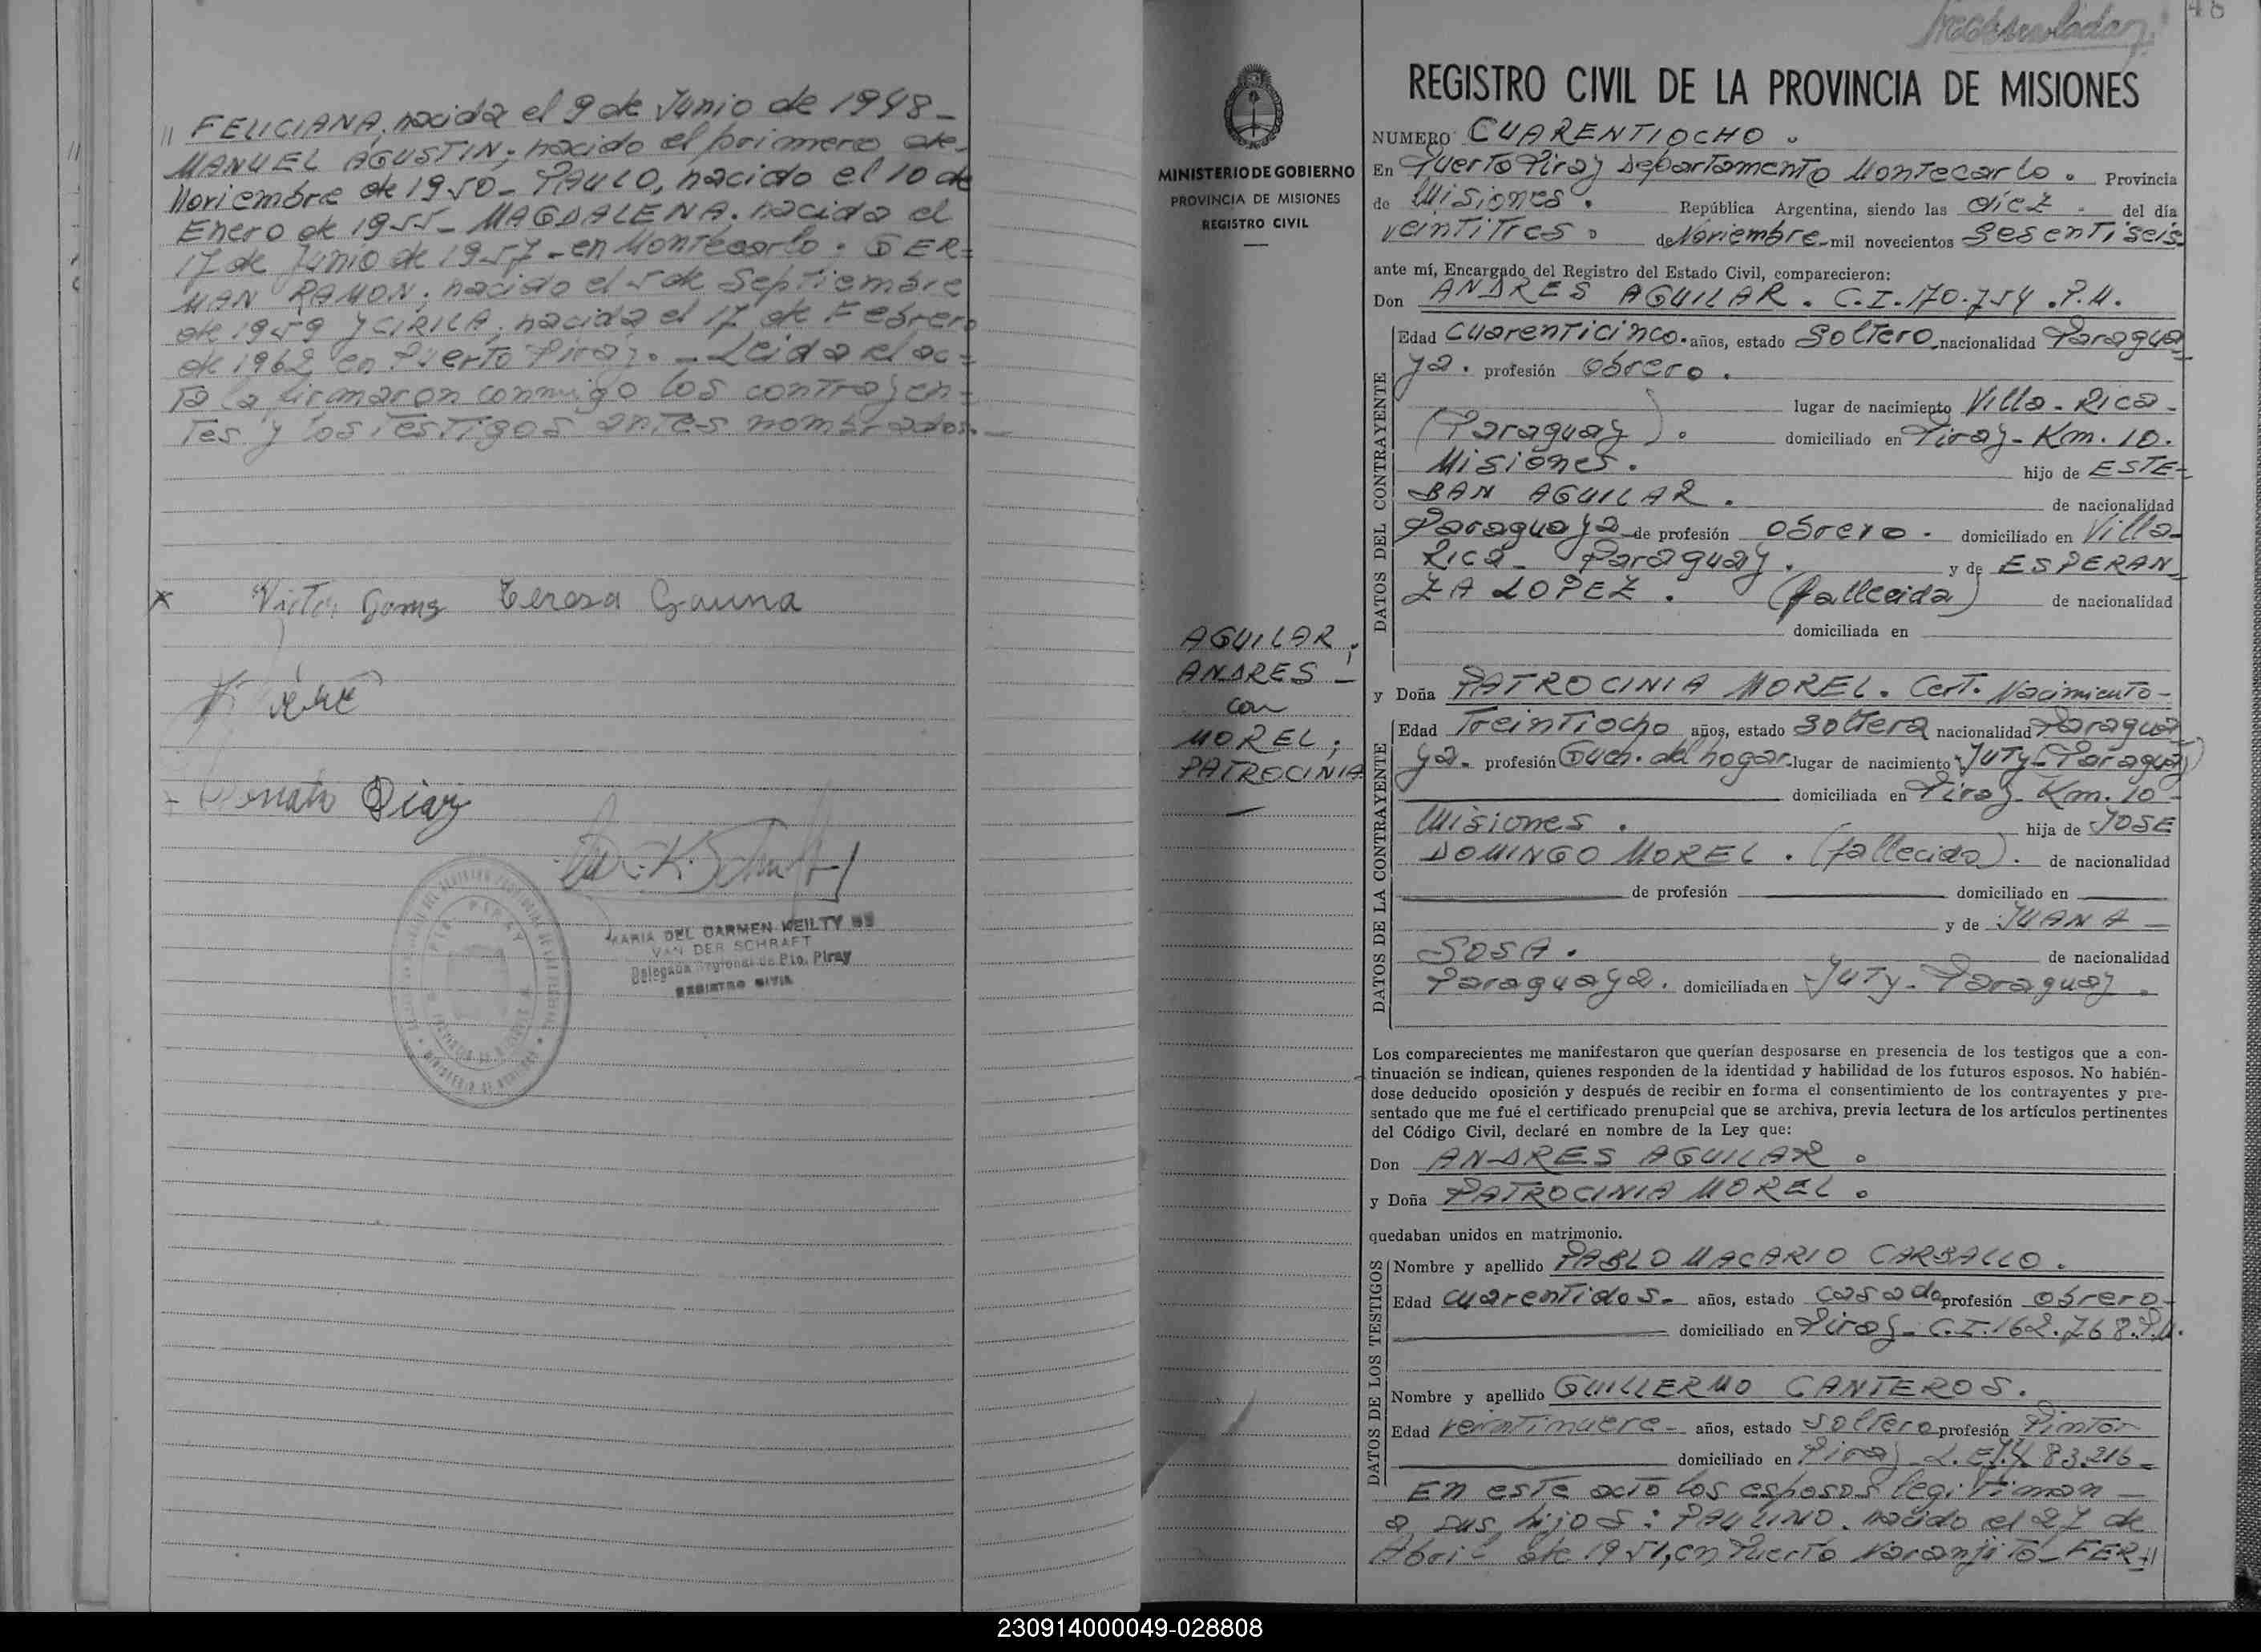 " FELICIANA, nacida el 9 de Junio de 1948-
MANUEL AGUSTIN; nacido el primero de-
Noviembre de 1950- PAULO, nacido el 10 de
Enero de 1955- MAGDALENA, nacida el
17 de Junio de 1957-en Montecarlo. GER=
MAN RAMON; nacido el 5 de Septiembre
de 1959 y CIRILA, nacida el 17 de Febrero
de 1962 en Puerto Piray.- Leida el ac=
ta la firmaron conmigo los contrayen=
tes y los testigos antes nombrados.-
x Victor Gomez Teresa Gauna
Donato Diaz
MARIA DEL CARMEN KEILTY DE
VAN DER SCHRAFT
Delegada Regional de Pto. Piray
REGISTRO CIVIL
48
MINISTERIO DE GOBIERNO
PROVINCIA DE MISIONES
REGISTRO CIVIL
AGUILAR;
ANDRES -
con
MOREL;
PATROCINIA
REGISTRO CIVIL DE LA PROVINCIA DE MISIONES
NUMERO CUARENTIOCHO.
En Puerto Piray Departamento Montecarlo. Provincia
de Misiones. República Argentina, siendo las diez - del día
veintitres. de Noviembre mil novecientos sesentiseis
ante mí, Encargado del Registro del Estado Civil, comparecieron:
Don ANDRES AGUILAR. C.I.170.754.P.M.
DATOS DEL CONTRAYENTE
Edad Cuarenticinco. años, estado Soltero nacionalidad Paragua
ya. profesión obrero.
lugar de nacimiento Villa-Rica-
(Paraguay). domiciliado en Piray-Km.10.
Misiones. hijo de ESTE-
BAN AGUILAR. de nacionalidad
Paraguaya de profesión obrero. domiciliado en Villa-
Rica- Paraguay. y de ESPERAN
ZA LOPEZ. (fallecida) de nacionalidad
domiciliada en
y Doña PATROCINIA MOREL. Cert. Nacimiento-
DATOS DE LA CONTRAYENTE
Edad Treintiocho años, estado soltera nacionalidad Paragua
ya. profesión Queh. del hogar. lugar de nacimiento Yuty-Paraguay
domiciliada en Piray-Km.10-
Misiones. hija de JOSE
DOMINGO MOREL. (fallecido). de nacionalidad
de profesión domiciliado en
y de JUANA
SOSA. de nacionalidad
Paraguaya. domiciliada en Yuty-Paraguay.
Los comparecientes me manifestaron que querían desposarse en presencia de los testigos que a con-
tinuación se indican, quienes responden de la identidad y habilidad de los futuros esposos. No habién-
dose deducido oposición y después de recibir en forma el consentimiento de los contrayentes y pre-
sentado que me fué el certificado prenupcial que se archiva, previa lectura de los artículos pertinentes
del Código Civil, declaré en nombre de la Ley que:
Don ANDRES AGUILAR.
y Doña PATROCINIA MOREL.
quedaban unidos en matrimonio.
DATOS DE LOS TESTIGOS
Nombre y apellido PABLO MACARIO CARBALLO.
Edad cuarentidos- años, estado casado profesión obrero-
domiciliado en Piray-C.I.162.768.P.M.
Nombre y apellido GUILLERMO CANTEROS.
Edad veintinueve- años, estado soltero profesión Pintor
domiciliado en Piray
En este acto los esposos legitiman -
a sus hijos: PAULINO, nacido el 27 de
Abril de 1951, en Puerto Naranjito-FER-"
230914000049-028808